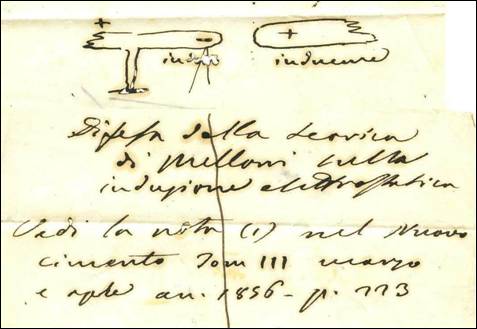 + - +
indotto inducente
Difesa della teorica
di Melloni sulla
induzione elettrostatica
Vedi la nota (1) nel Nuovo
cimento Tom III marzo
e aple an. 1856 - p. 223